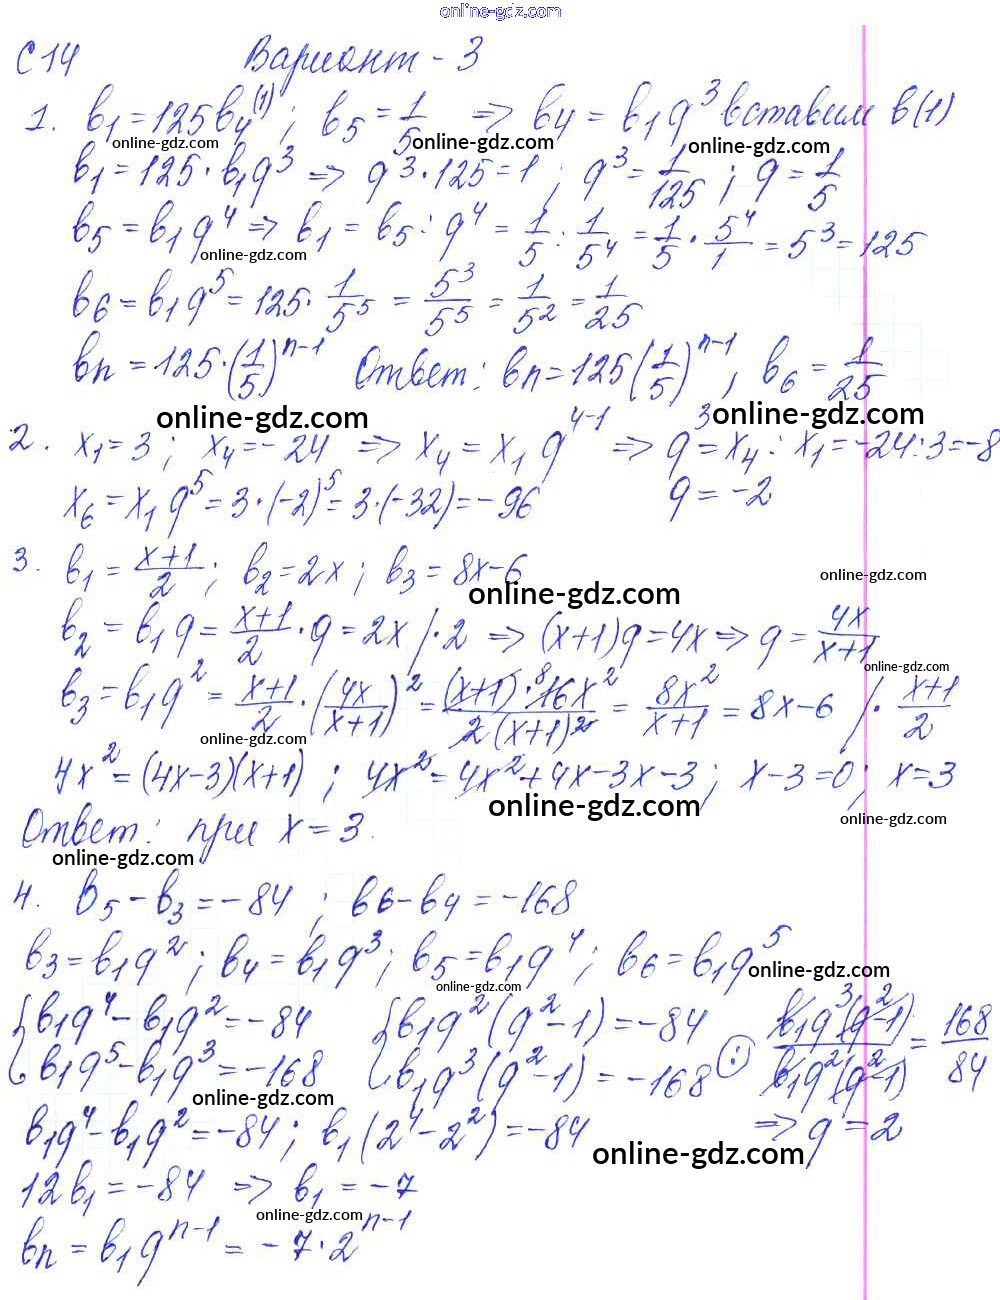 online-gdz.com
С 14 Вариант - 3
1. b₁ = 125b₄⁽¹⁾ ; b₅ = 1/5 => b₄ = b₁q³ вставим в (1)
online-gdz.com online-gdz.com online-gdz.com
b₁ = 125 · b₁q³ => q³ · 125 = 1 ; q³ = 1/125 ; q = 1/5
b₅ = b₁q⁴ => b₁ = b₅ : q⁴ = 1/5 : 1/5⁴ = 1/5 · 5⁴/1 = 5³ = 125
online-gdz.com
b₆ = b₁q⁵ = 125 · 1/5⁵ = 5³/5⁵ = 1/5² = 1/25
bn = 125 · (1/5)ⁿ⁻¹ Ответ: bn = 125(1/5)ⁿ⁻¹, b₆ = 1/25
online-gdz.com online-gdz.com
2. x₁ = 3 ; x₄ = -24 => x₄ = x₁q⁴⁻¹ => q³ = x₄ : x₁ = -24 : 3 = -8
x₆ = x₁q⁵ = 3 · (-2)⁵ = 3 · (-32) = -96 q = -2
3. b₁ = x+1/2 ; b₂ = 2x ; b₃ = 8x-6
online-gdz.com online-gdz.com
b₂ = b₁q = x+1/2 · q = 2x / · 2 => (x+1)q = 4x => q = 4x/x+1
online-gdz.com
b₃ = b₁q² = x+1/2 · (4x/x+1)² = (x+1) · ⁸16x²/2(x+1)² = 8x²/x+1 = 8x-6 / · x+1/2
online-gdz.com
4x² = (4x-3)(x+1) ; 4x² = 4x² + 4x - 3x - 3 ; x-3 = 0 ; x = 3
online-gdz.com online-gdz.com
Ответ: при x = 3.
online-gdz.com
4. b₅ - b₃ = -84 ; b₆ - b₄ = -168
b₃ = b₁q² ; b₄ = b₁q³ ; b₅ = b₁q⁴ ; b₆ = b₁q⁵
online-gdz.com online-gdz.com
{ b₁q⁴ - b₁q² = -84 { b₁q²(q²-1) = -84 b₁q³(q²-1)/b₁q²(q²-1) = 168/84
b₁q⁵ - b₁q³ = -168 b₁q³(q²-1) = -168 (:)
online-gdz.com
b₁q⁴ - b₁q² = -84 ; b₁(2⁴ - 2²) = -84 => q = 2
online-gdz.com
12b₁ = -84 => b₁ = -7
online-gdz.com
bn = b₁qⁿ⁻¹ = -7 · 2ⁿ⁻¹